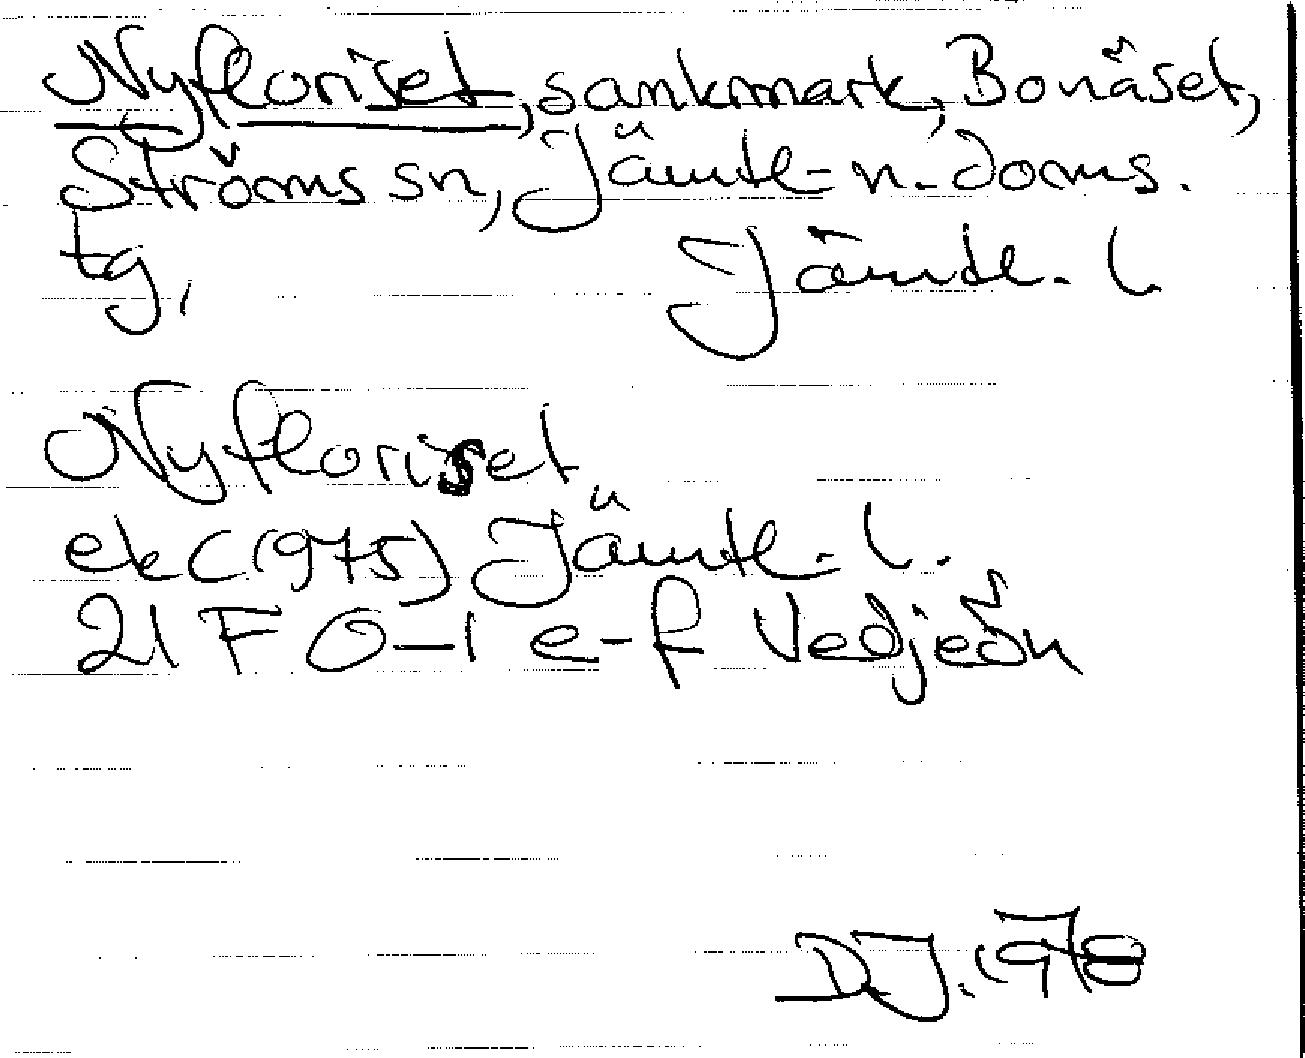 Nyfloriset, sankmark, Bonäset,
Ströms sn, Jämtl- n. doms.
tg,
Jämtl. l.
Nyfloriset
ek (1975) Jämtl. l.
21 F 0-1 e-f Vedjeön
DJ. 1978